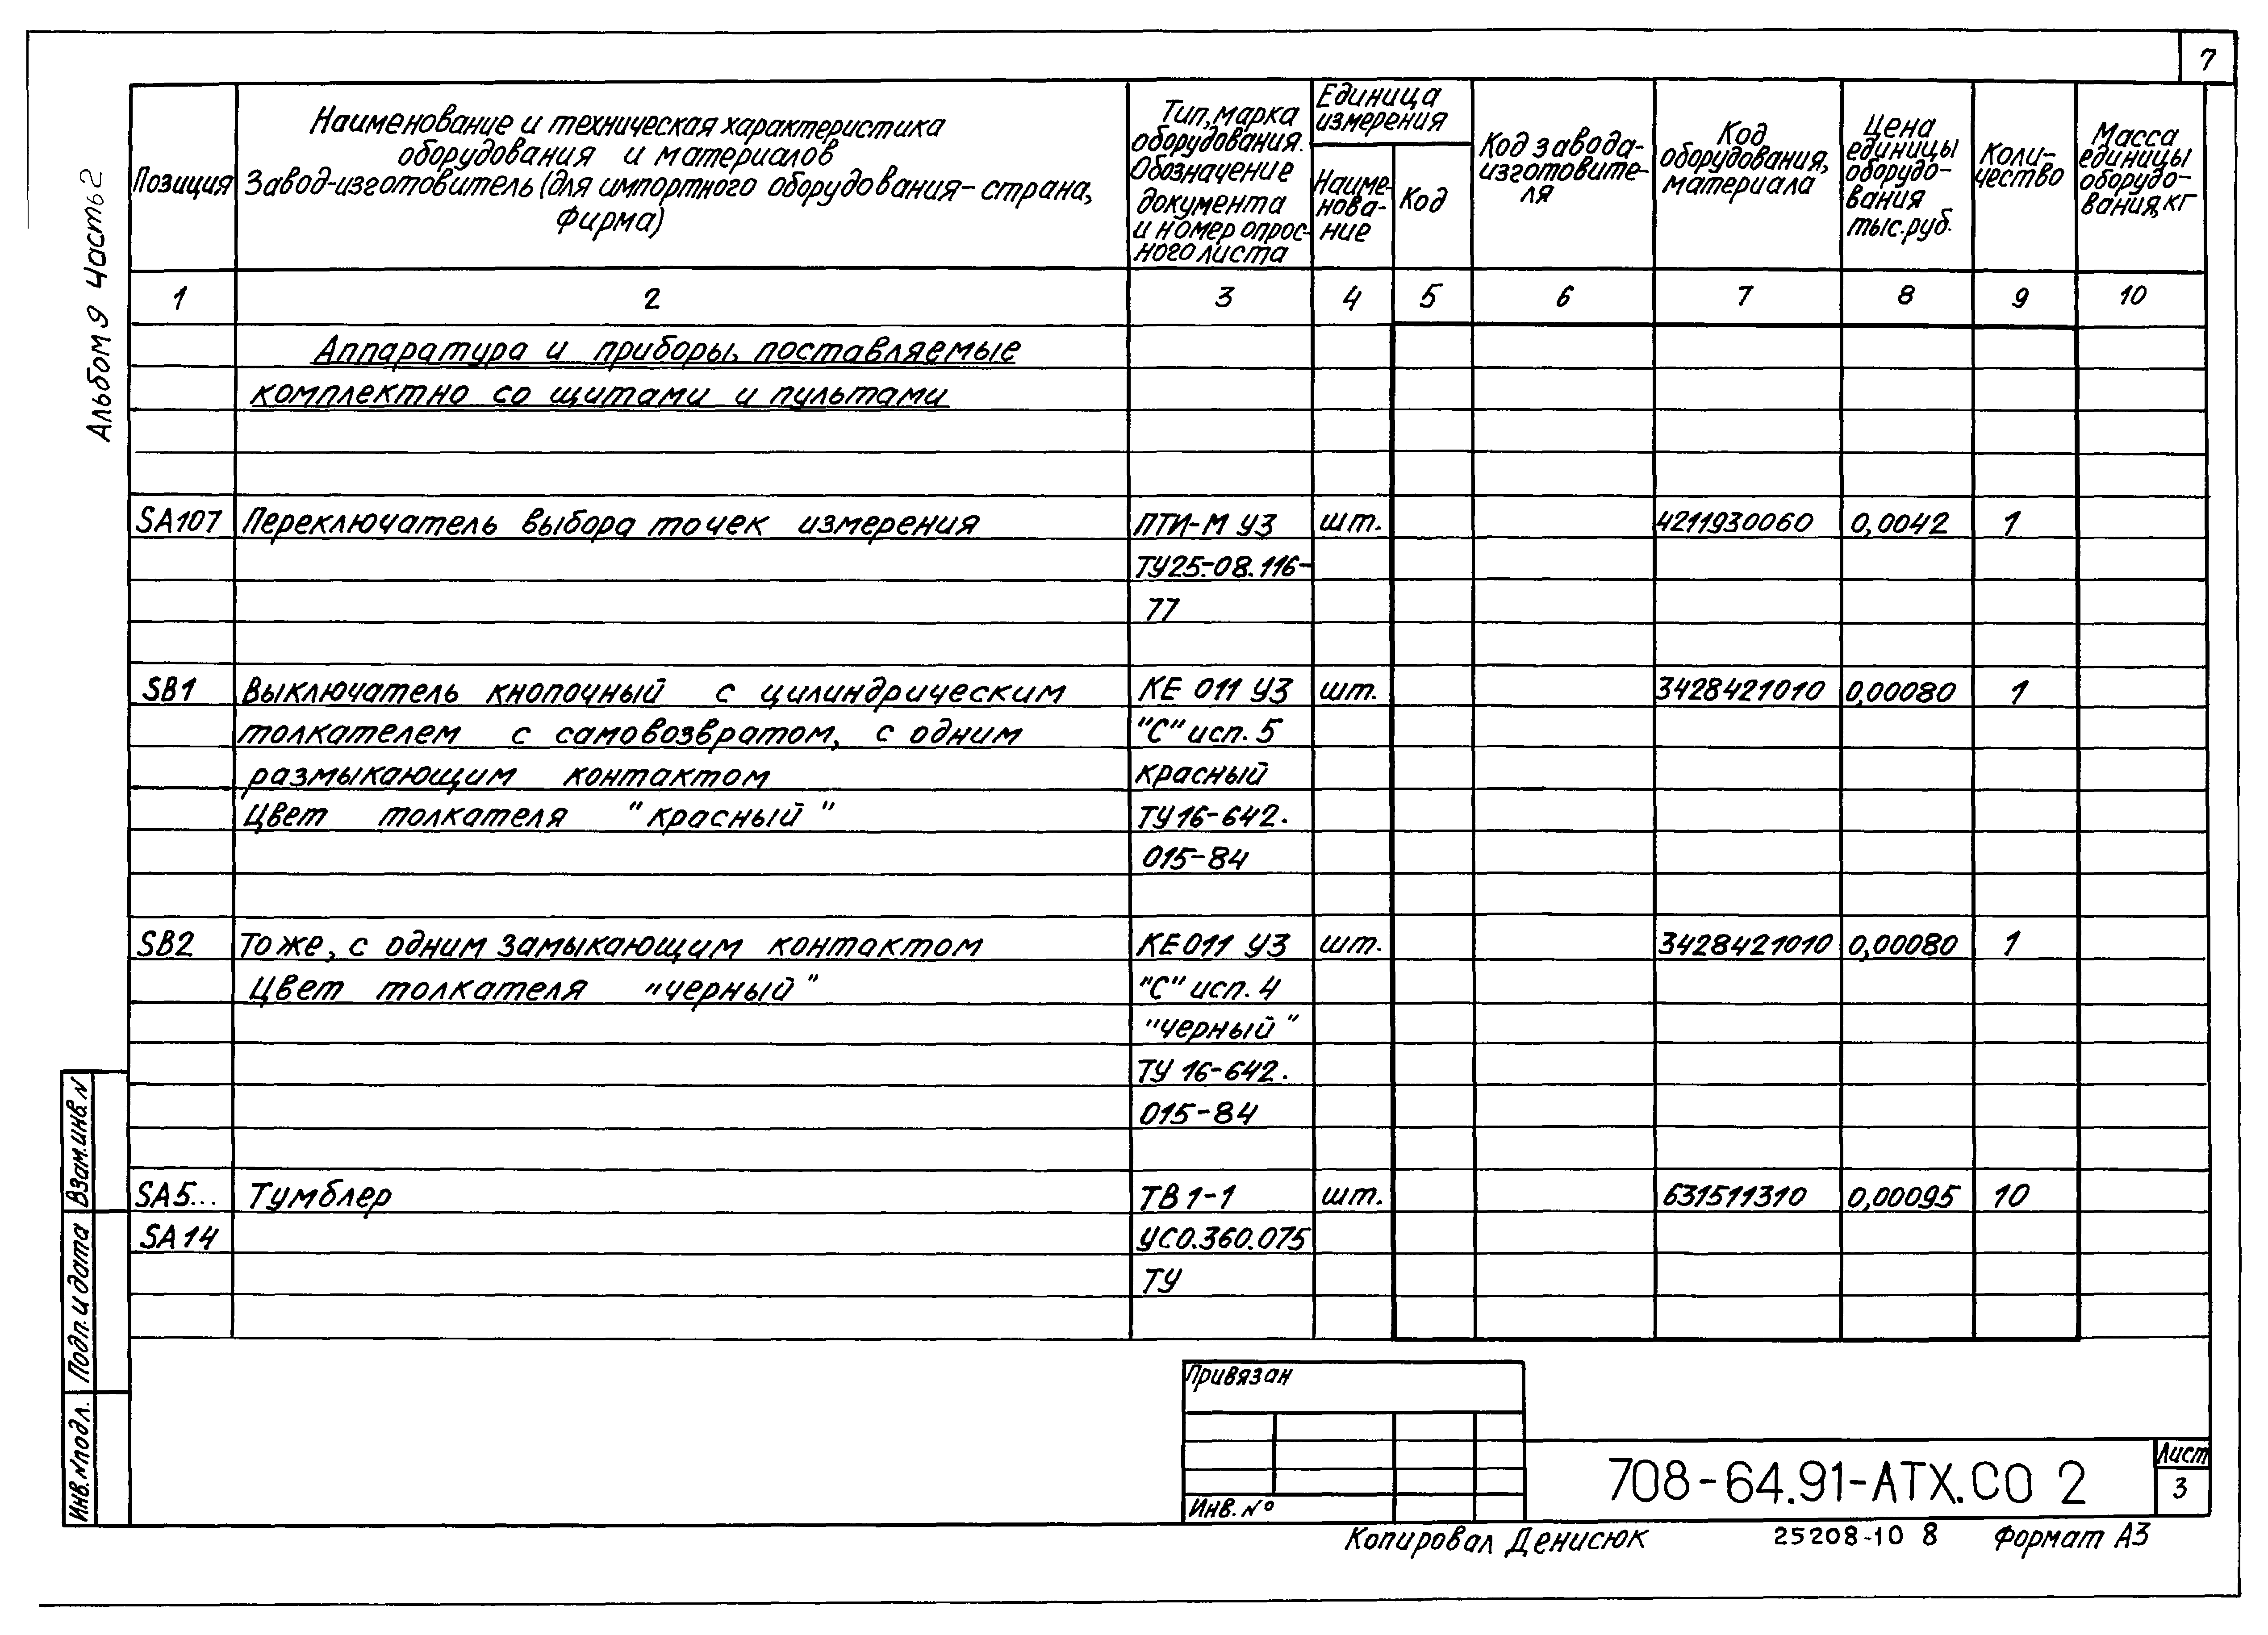 7
Альбом 9 Часть 2
Позиция
Наименование и техническая характеристика
оборудования и материалов
Завод-изготовитель (для импортного оборудования-страна,
фирма)
Тип, марка
оборудования.
Обозначение
документа
и номер опрос-
ного листа
Единица
измерения
Наиме-
нова-
ние
Код
Код завода-
изготовите-
ля
Код
оборудования,
материала
Цена
единицы
оборудо-
вания
тыс. руб.
Коли-
чество
Масса
единицы
оборудо-
вания, кг
1 2 3 4 5 6 7 8 9 10
Аппаратура и приборы, поставляемые
комплектно со щитами и пультами
SA107 Переключатель выбора точек измерения ПТИ-М У3 шт. 4211930060 0,0042 1
ТУ25.-08.116-
77
SB1 Выключатель кнопочный с цилиндрическим КЕ 011 У3 шт. 3428421010 0,00080 1
толкателем с самовозвратом, с одним "С" исп. 5
размыкающим контактом красный
Цвет толкателя "красный" ТУ16-642.
015-84
SB2 Тоже, с одним замыкающим контактом КЕ011 У3 шт. 3428421010 0,00080 1
Цвет толкателя "черный" "С" исп. 4
"черный"
ТУ 16-642.
015-84
SA5... Тумблер ТВ1-1 шт. 631511310 0,00095 10
SA14 УСО.360.075
ТУ
Взам. инв. N
Подп. и дата
Инв. N подл.
Привязан
Инв. №
708-64.91-АТХ.СО 2
Лист
3
Копировал Денисюк 25208-10 8 Формат А3